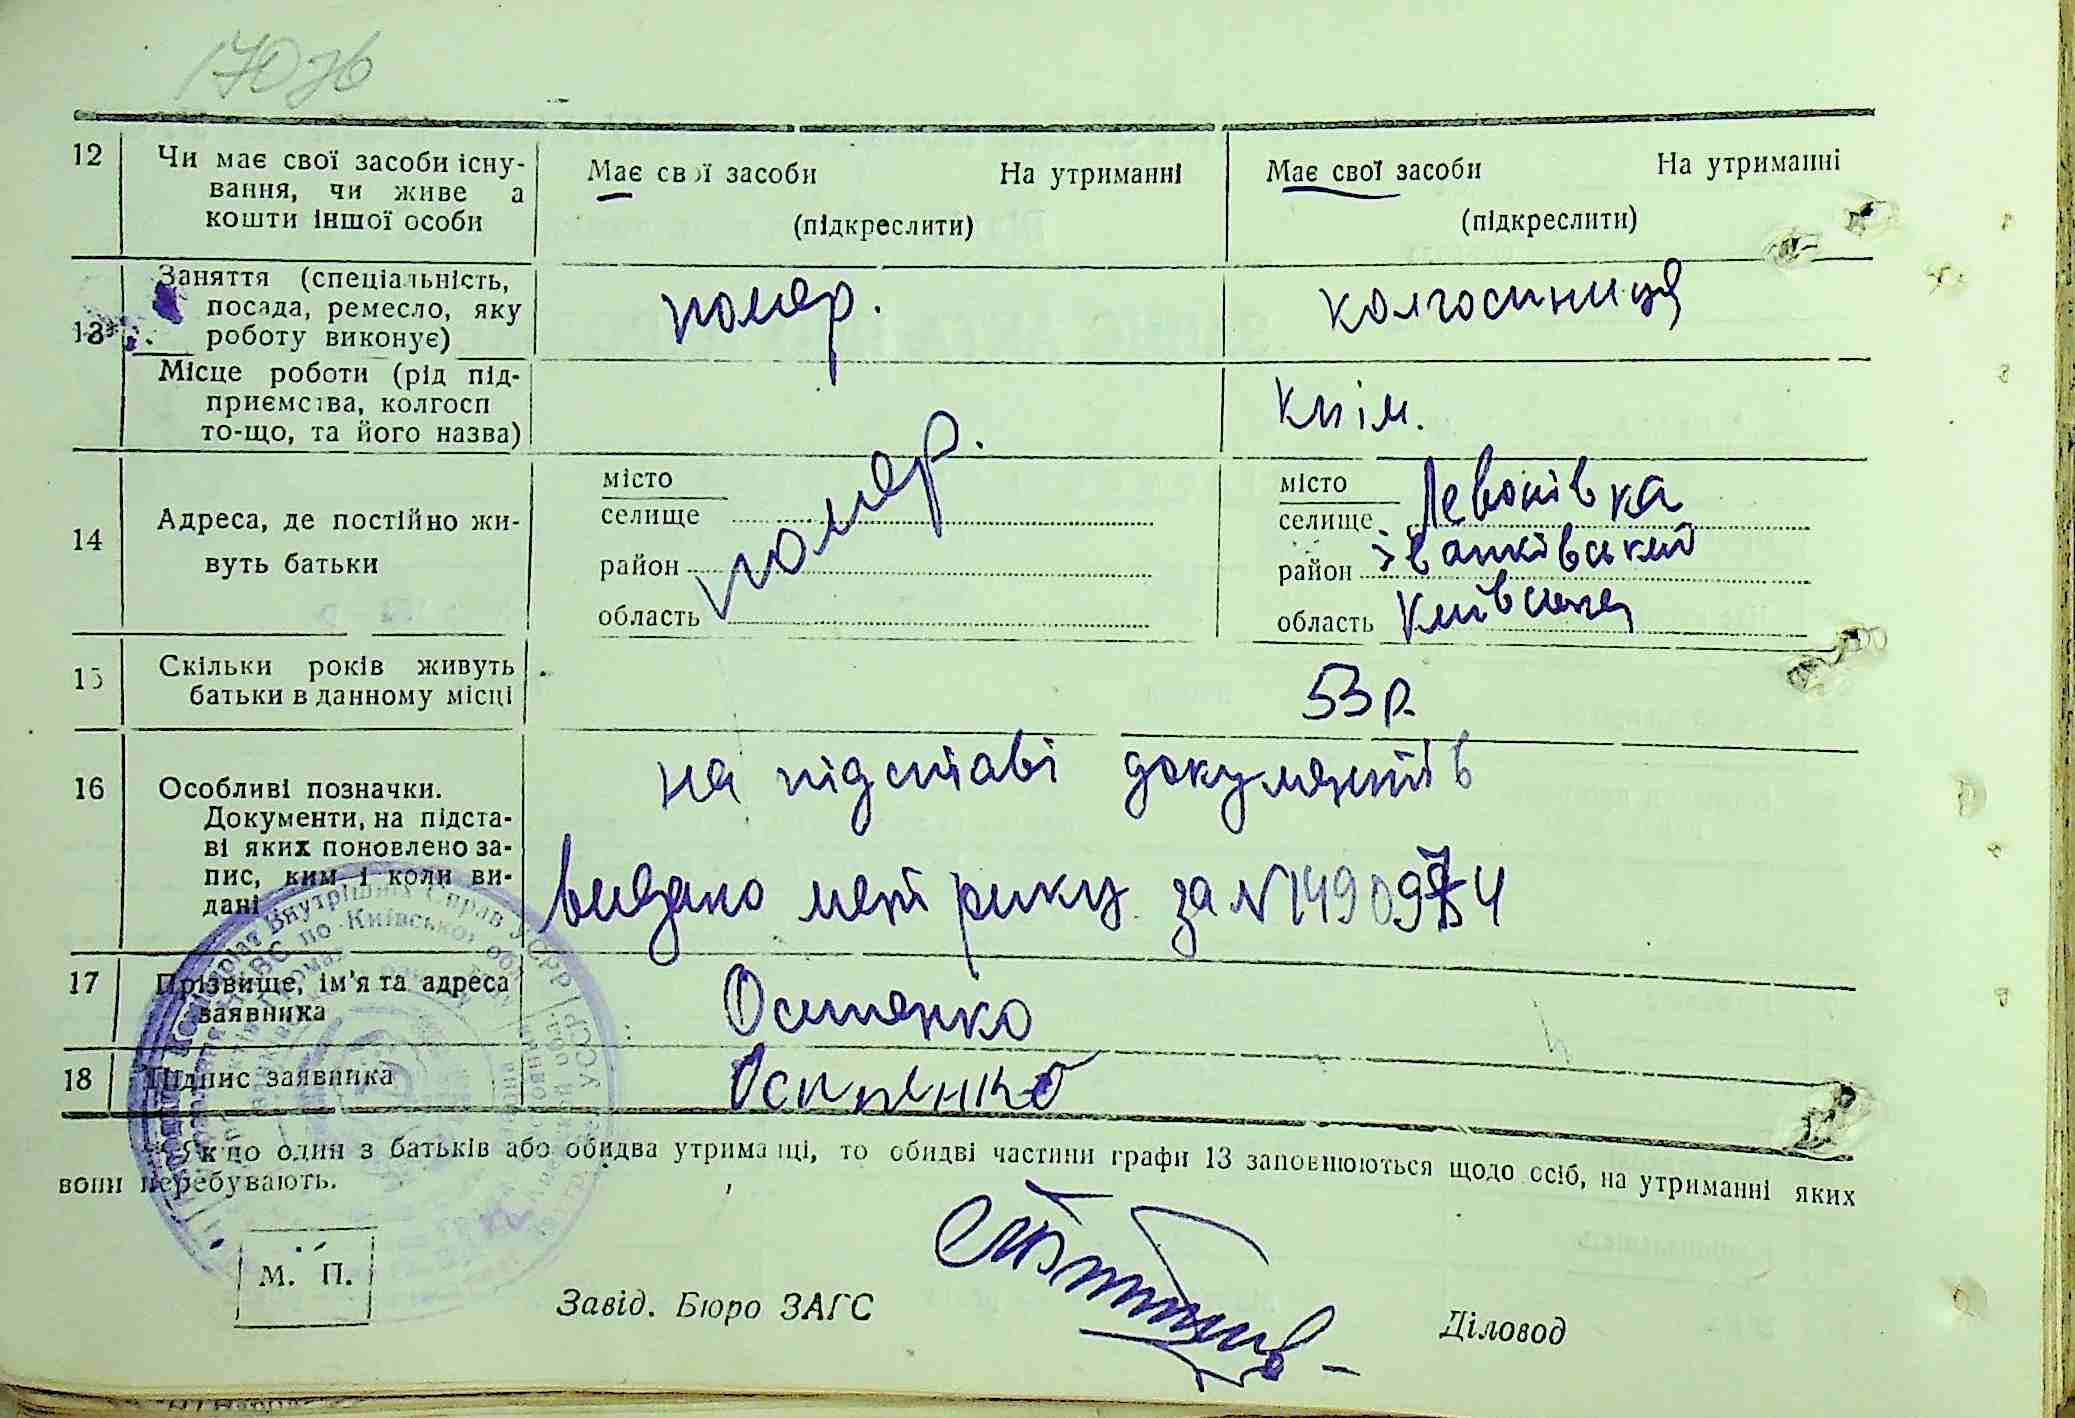 170зв
12 Чи має свої засоби існу-
вання, чи живе а
кошти іншої особи
Має свої засоби На утриманні
(підкреслити)
Має свої засоби На утриманні
(підкреслити)
13* Заняття (спеціальність,
посада, ремесло, яку
роботу виконує)
помер.
колгоспниця
Місце роботи (рід під-
приємства, колгосп
то-що, та його назва)
Кпім.
14 Адреса, де постійно жи-
вуть батьки
місто
селище
район
область
помер.
місто
селище Левонівка
район Іванківський
область Київська
15 Скільки років живуть
батьки в данному місці
53 р.
16 Особливі позначки.
Документи, на підста-
ві яких поновлено за-
пис, ким і коли ви-
дані
на підставі документів
видано метрику за N
17 Прізвище, ім'я та адреса
заявника
Осипенко
18 Підпис заявника
Осипенко
* Якщо один з батьків або обидва утриманці, то обидві частини графи 13 заповнюються щодо осіб, на утриманні яких
вони перебувають.
М. П.
Завід. Бюро ЗАГС
Діловод